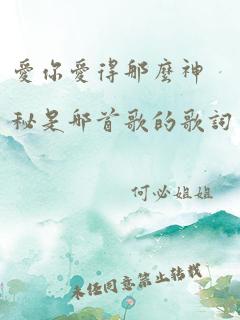 愛你愛得那麼神
秘是那首歌的歌詞
何必姐姐
未经同意禁止转载